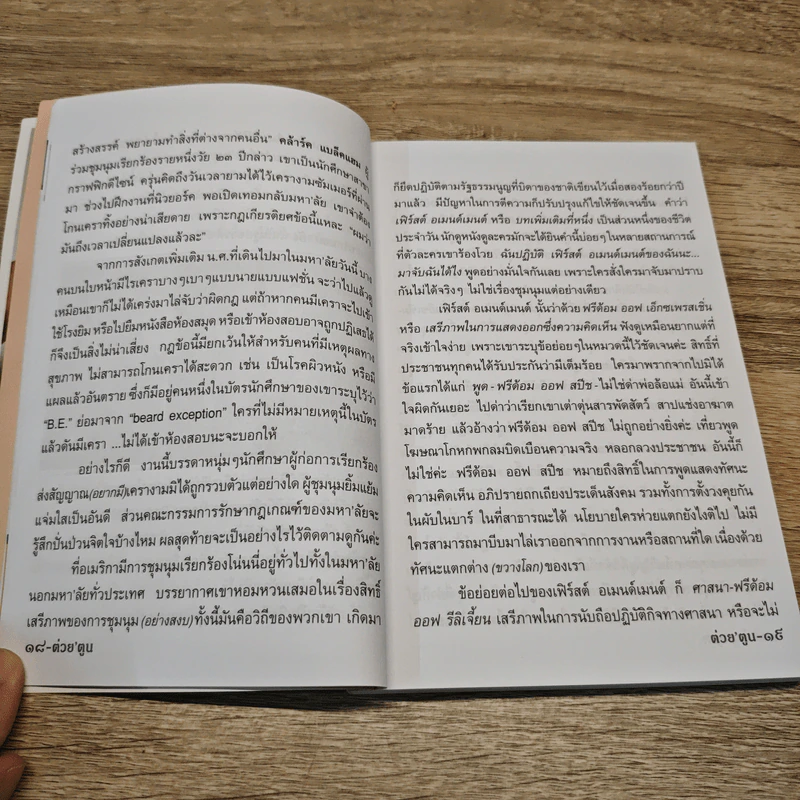 สร้างสรรค์ พยายามทำสิ่งที่ต่างจากคนอื่น” คล้าร์ค แบล็คแฮม ผู้
ร่วมชุมนุมเรียกร้องรายหนึ่งวัย ๒๓ ปีกล่าว เขาเป็นนักศึกษาสาขา
กราฟฟิกดีไซน์ ครุ่นคิดถึงวันเวลายามได้ไว้เครางามซัมเมอร์ที่ผ่าน
มา ช่วงไปฝึกงานที่นิวยอร์ค พอเปิดเทอมกลับมหา'ลัย เขาจำต้อง
โกนเคราทิ้งอย่างน่าเสียดาย เพราะกฎเกียรติยศข้อนี้แหละ “ผมว่า
มันถึงเวลาเปลี่ยนแปลงแล้วละ”
จากการสังเกตเพิ่มเติม น.ศ.ที่เดินไปมาในมหา'ลัยวันนี้ บาง
คนบนใบหน้ามีไรเคราบางๆเบาๆแบบนายแบบแฟชั่น จะว่าไปแล้วดู
เหมือนเขาก็ไม่ได้เคร่งมาไล่จับว่าผิดกฎ แต่ถ้าหากคนมีเคราจะไปเข้า
ใช้โรงยิม หรือไปยืมหนังสือห้องสมุด หรือเข้าห้องสอบอาจถูกปฏิเสธได้
ก็จึงเป็นสิ่งไม่น่าเสี่ยง กฎข้อนี้มียกเว้นให้สำหรับคนที่มีเหตุผลทาง
สุขภาพ ไม่สามารถโกนเคราได้สะดวก เช่น เป็นโรคผิวหนัง หรือมี
แผลแล้วอันตราย ซึ่งก็มีอยู่คนหนึ่งในบัตรนักศึกษาของเขาระบุไว้ว่า
“B.E.” ย่อมาจาก “beard exception” ใครที่ไม่มีหมายเหตุนี้ในบัตร
แล้วดันมีเครา ...ไม่ได้เข้าห้องสอบนะจะบอกให้
อย่างไรก็ดี งานนี้บรรดาหนุ่มๆนักศึกษาผู้ก่อการเรียกร้อง
ส่งสัญาณ(อยากมี)เครางามมิได้ถูกรวบตัวแต่อย่างใด ผู้ชุมนุมยิ้มแย้ม
แจ่มใสเป็นอันดี ส่วนคณะกรรมการรักษากฎเกณฑ์ของมหา'ลัยจะ
รู้สึกปั่นป่วนจิตใจบ้างไหม ผลสุดท้ายจะเป็นอย่างไรไว้ติดตามดูกันค่ะ
ที่อเมริกามีการชุมนุมเรียกร้องโน่นนี่อยู่ทั่วไปทั้งในมหา'ลัย
นอกมหา'ลัยทั่วประเทศ บรรยากาศเขาหอมหวนเสมอในเรื่องสิทธิ์
เสรีภาพของการชุมนุม (อย่างสงบ) ทั้งนี้มันคือวิถีของพวกเขา เกิดมา
๑๘-ต่วย'ตูน
ก็ยึดปฏิบัติตามรัฐธรรมนูญที่บิดาของชาติเขียนไว้เมื่อสองร้อยกว่าปี
มาแล้ว มีปัญหาในการตีความก็ปรับปรุงแก้ไขให้ชัดเจนขึ้น คำว่า
เฟิร์สต์ อเมนด์เมนต์ หรือ บทเพิ่มเติมที่หนึ่ง เป็นส่วนหนึ่งของชีวิต
ประจำวัน นักดูหนังดูละครมักจะได้ยินคำนี้บ่อยๆในหลายสถานการณ์
ที่ตัวละครเขาร้องโวย ฉันปฏิบัติ เฟิร์สต์ อเมนด์เมนต์ของฉันนะ...
มาจับฉันได้ไง พูดอย่างมั่นใจกันเลย เพราะใครสั่งใครมาจับมาปราบ
กันไม่ได้จริงๆ ไม่ใช่เรื่องชุมนุมแต่อย่างเดียว
เฟิร์สต์ อเมนด์เมนต์ นั้นว่าด้วย ฟรีด้อม ออฟ เอ็กซเพรสเชิ่น
หรือ เสรีภาพในการแสดงออกซึ่งความคิดเห็น ฟังดูเหมือนยากแต่ที่
จริงเข้าใจง่าย เพราะเขาระบุข้อย่อยๆในหมวดนี้ไว้ชัดเจนค่ะ สิทธิ์ที่
ประชาชนทุกคนได้รับประกันว่ามีเต็มร้อย ใครมาพรากจากไปมิได้
ข้อแรกได้แก่ พูด-ฟรีด้อม ออฟ สปีช-ไม่ใช่ด่าพ่อล้อแม่ อันนี้เข้า
ใจผิดกันเยอะ ไปด่าว่าเรียกเขาเต่าตุ่นสารพัดสัตว์ สาปแช่งอาฆาต
มาดร้าย แล้วอ้างว่าฟรีด้อม ออฟ สปีช ไม่ถูกอย่างยิ่งค่ะ เที่ยวพูด
โฆษณาโกหกพกลมบิดเบือนความจริง หลอกลวงประชาชน อันนี้ก็
ไม่ใช่ค่ะ ฟรีด้อม ออฟ สปีช หมายถึงสิทธิ์ในการพูดแสดงทัศนะ
ความคิดเห็น อภิปรายถกเถียงประเด็นสังคม รวมทั้งการตั้งวงคุยกัน
ในผับในบาร์ ในที่สาธารณะได้ นโยบายใครห่วยแตกยังไงติไป ไม่มี
ใครสามารถมาบีบมาไล่เราออกจากการงานหรือสถานที่ใด เนื่องด้วย
ทัศนะแตกต่าง (ขวางโลก) ของเรา
ข้อย่อยต่อไปของเฟิร์สต์ อเมนด์เมนต์ ก็ ศาสนา-ฟรีด้อม
ออฟ รีลิเจี้ยน เสรีภาพในการนับถือปฏิบัติกิจทางศาสนา หรือจะไม่
ต่วย'ตูน-๑๙